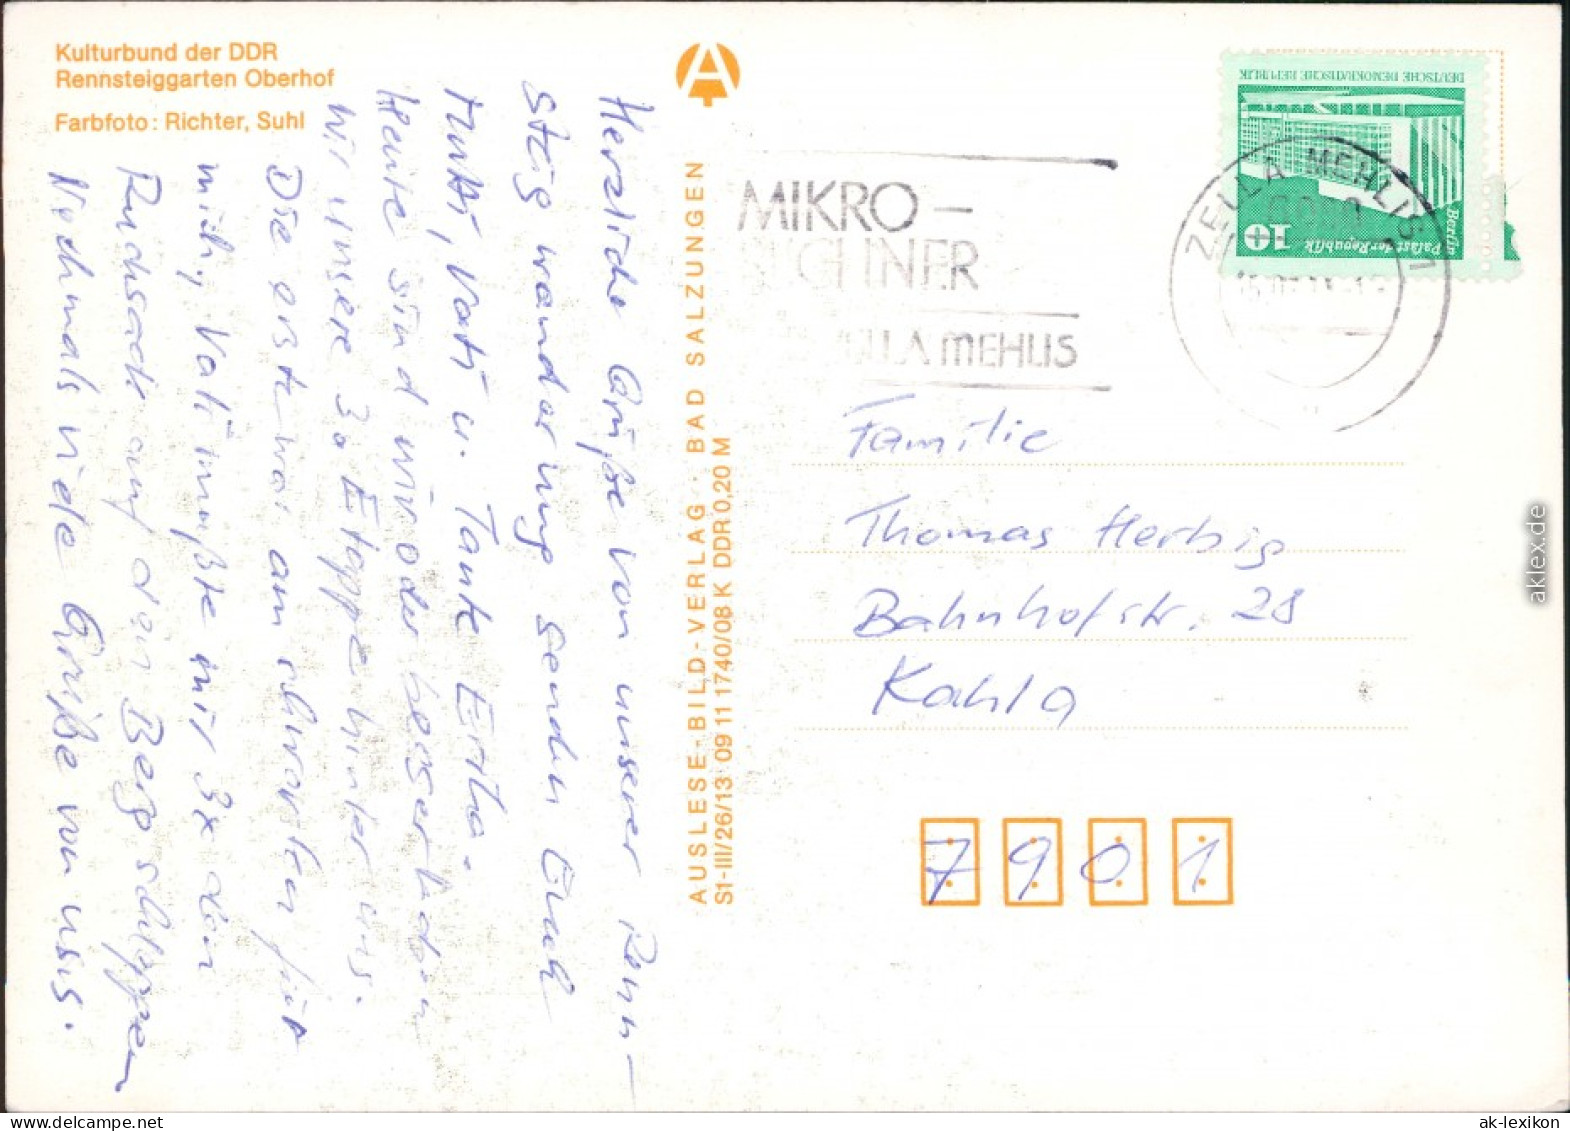 Kulturbund der DDR
Rennsteiggarten Oberhof
Farbfoto: Richter, Suhl
Herzliche Grüße von unserer Renn-
steigwanderung senden Euch
Mutti, Vati u. Tante Ertha.
Heute sind wir oder besser haben
wir unsere 3. Etappe hinter uns.
Die erste war am schwersten für
mich, Vati mußte mir 3x den
Rucksack auf den Berg schleppen
Nochmals viele Grüße von uns.
AUSLESE-BILD-VERLAG · BAD SALZUNGEN
S1-III/26/13 09 11 1740/08 K DDR 0,20 M
MIKRO-
MEHLIS
ZELLA-MEHLIS 1
DEUTSCHE DEMOKRATISCHE REPUBLIK
10
Palast der Republik
Berlin
Familie
Thomas Herbig
Bahnhofstr. 28
Kahla
7901
aklex.de
ak-lexikon